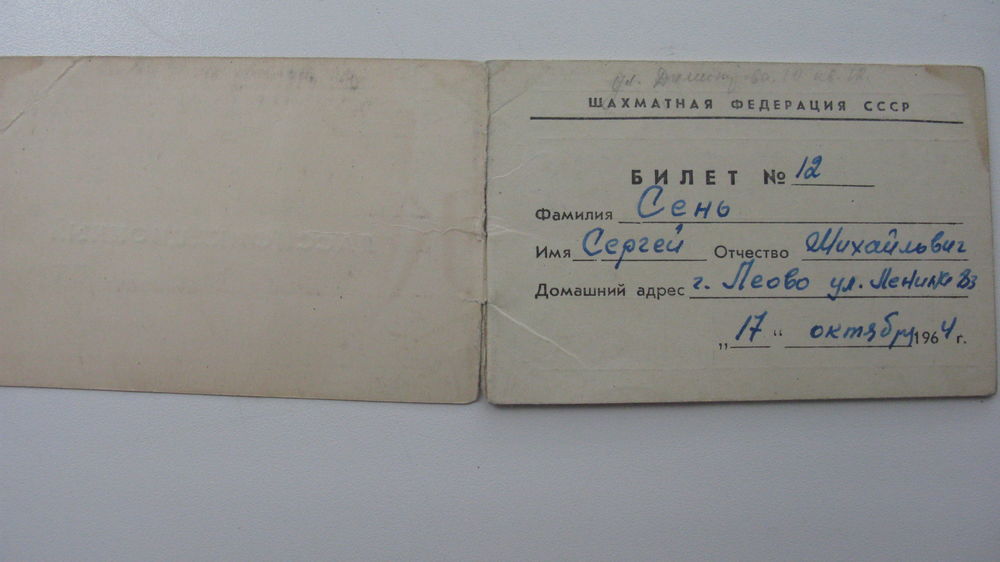 ул.
ШАХМАТНАЯ ФЕДЕРАЦИЯ СССР
БИЛЕТ № 12
Фамилия Сень
Имя Сергей Отчество Михайлович
Домашний адрес г. Леово ул. Ленина
„17“ октября 1964 г.